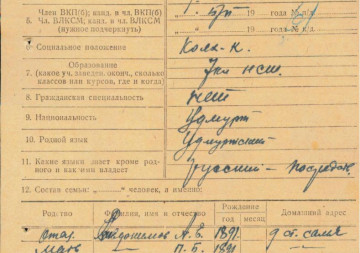 Член ВКП(б); канд. в чл. ВКП(б)
5. Член ВЛКСМ; канд. в чл. ВЛКСМ
(нужное подчеркнуть)
19 года № п/б.
19 года № к/д.
6. Социальное положение Колх-к.
Образование
7. (какое уч. заведен. оконч., сколько
классов или курсов, где и когда) 7кл НСШ.
8. Гражданская специальность нет
9. Национальность Удмурт
10. Родной язык Удмуртский
11. Какие языки знает кроме род-
ного и как ими владеет Русский – посредств.
12. Состав семьи: „ “ человек, а именно:
Родство Фамилия, имя и отчество Рождение Домашний адрес
год месяц
Отец А. Е. 1891
Мать П. Б. 1891